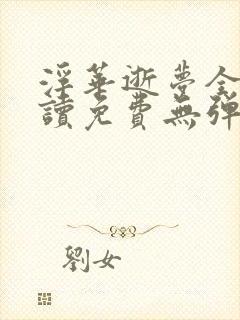 淫華逝夢全
讀免費無彈
劉女